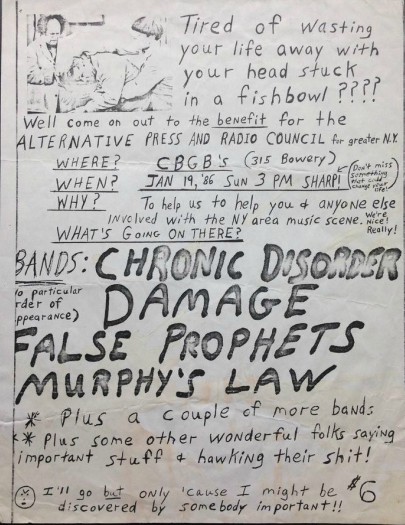 Tired of wasting
your life away with
your head stuck
in a fishbowl ????
Well come on out to the benefit for the
ALTERNATIVE PRESS AND RADIO COUNCIL for greater N.Y.
WHERE? CBGB's (315 Bowery)
WHEN? JAN 19, '86 SUN 3 PM SHARP!
(Don't miss
something
that could
change your
life!)
WHY? To help us to help you & anyone else
involved with the NY area music scene.
We're
Nice!
Really!
WHAT'S GOING ON THERE?
BANDS: CHRONIC DISORDER
(no particular
order of
appearance)
DAMAGE
FALSE PROPHETS
MURPHY'S LAW
* Plus a couple of more bands
** Plus some other wonderful folks saying
important stuff & hawking their shit!
I'll go but only 'cause I might be
discovered by somebody important!!
$6